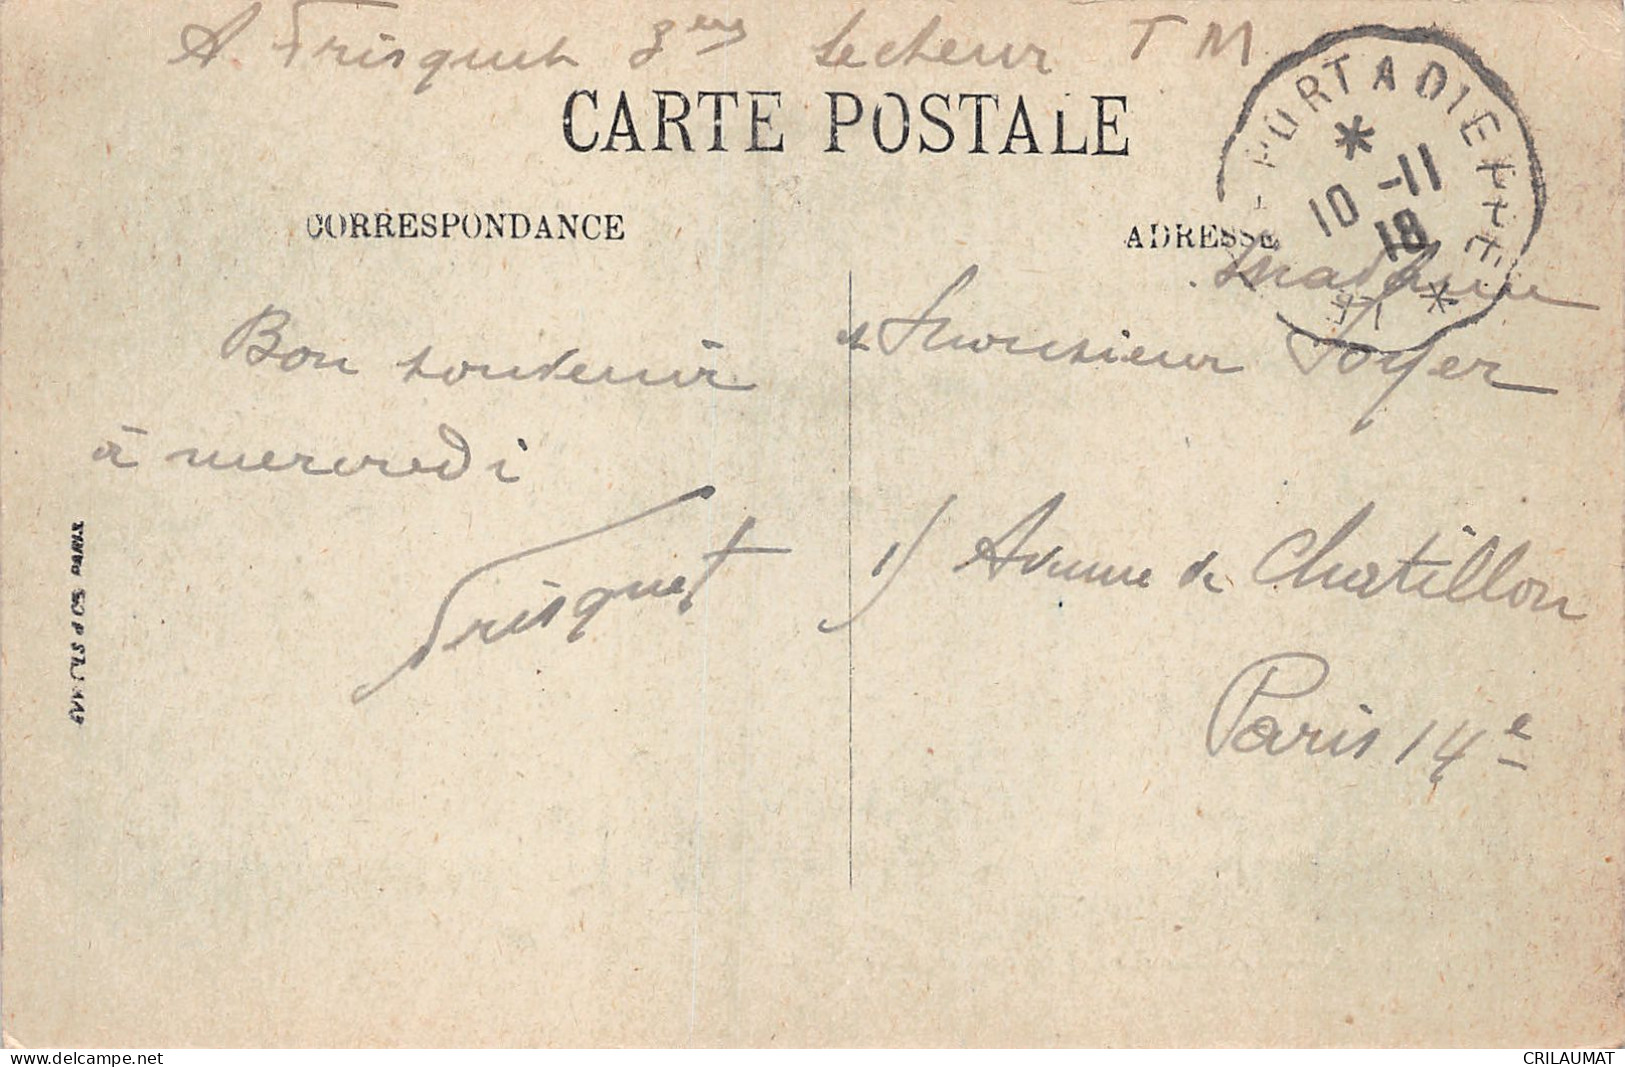 A Frisquet 3me Secteur T M
CARTE POSTALE
CORRESPONDANCE
ADRESSE
PORT A DIEPPE
10 -11
18
LE
Bon souvenir
à mercredi
Frisquet
Madame
et Monsieur Soyer
1) Avenue de Chatillon
Paris 14e
www.delcampe.net
CRILAUMAT